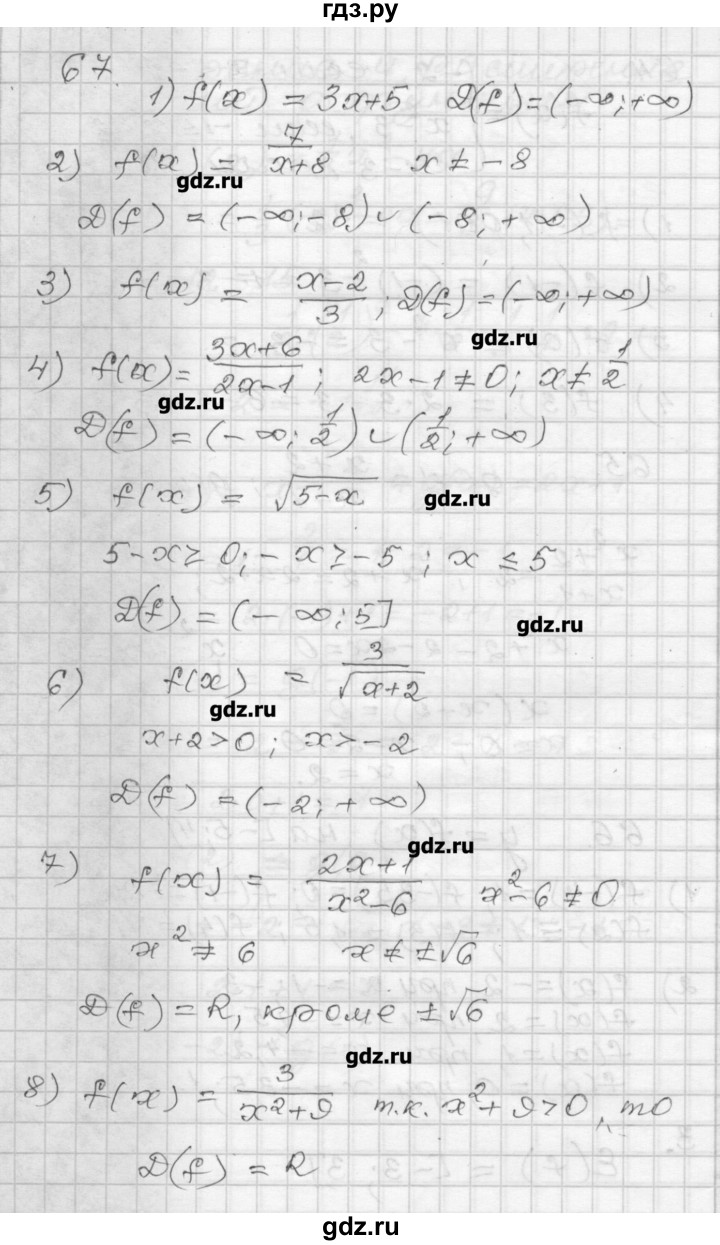 гдз.ру
67.
1) f(x) = 3x+5 D(f) = (-∞; +∞)
2) f(x) = 7/(x+8) x ≠ -8
gdz.ru
D(f) = (-∞; -8) ∪ (-8; +∞)
3) f(x) = (x-2)/3 ; D(f) = (-∞; +∞)
gdz.ru
4) f(x) = (3x+6)/(2x-1) ; 2x-1 ≠ 0; x ≠ 1/2
gdz.ru
D(f) = (-∞; 1/2) ∪ (1/2; +∞)
5) f(x) = √(5-x) gdz.ru
5-x ≥ 0; -x ≥ -5 ; x ≤ 5
D(f) = (-∞; 5]
gdz.ru
6) f(x) = 3/√(x+2)
gdz.ru
x+2>0 ; x>-2
D(f) = (-2; +∞)
gdz.ru
7) f(x) = (2x+1)/(x²-6) x²-6 ≠ 0
x² ≠ 6 x ≠ ±√6
D(f) = R, кроме ±√6
gdz.ru
8) f(x) = 3/(x²+9) т.к. x²+9>0, то
D(f) = R
gdz.ru